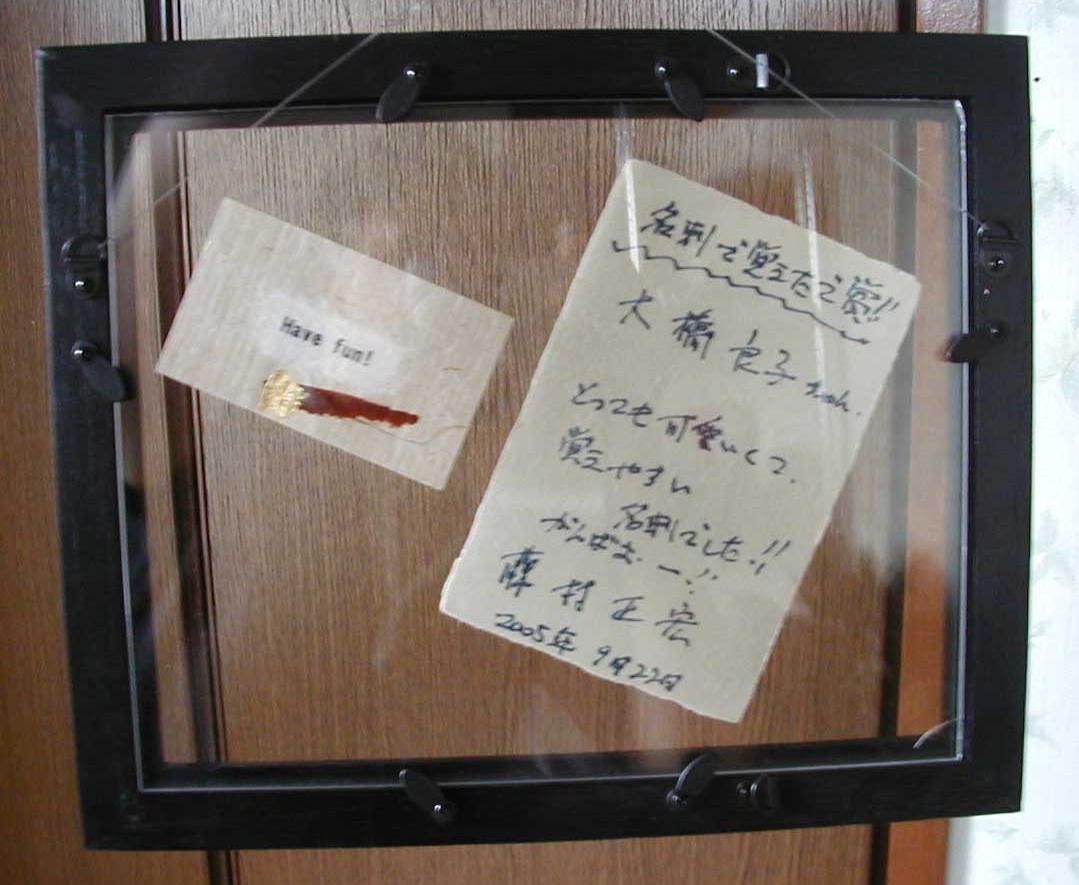 Have fun!
名刺で覚えたで賞!!
大橋良子ちゃん.
とっても可愛いくて、
覚えやすい
名刺でした!!
がんばぁ.ー!!
藤村正宏
2005年9月22日